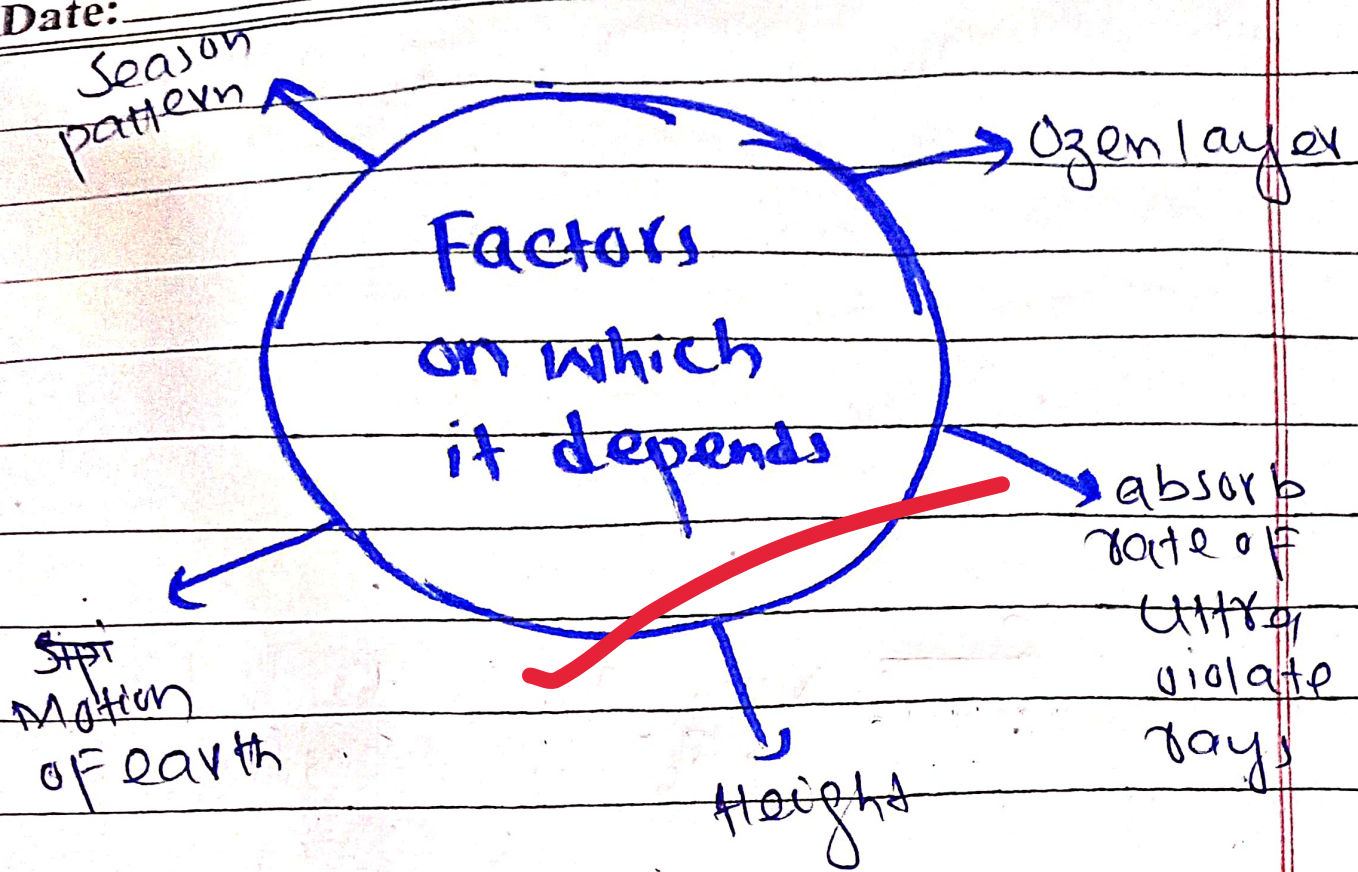 Date:
Season
pattern
Ozen layer
Factors
on which
it depends
absorb
rate of
Uttra
violate
rays
Motion
of earth
Height